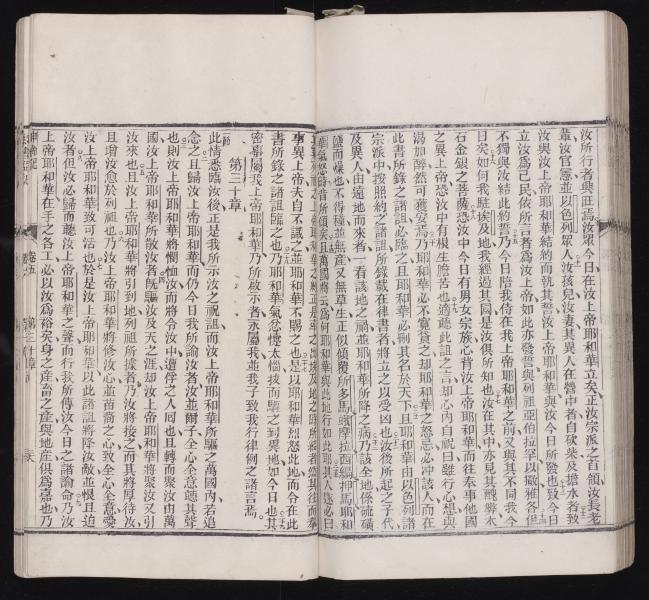 汝所行者與正焉汝眾今日在汝上帝耶和華立矣正汝宗派之首領汝長老
輩汝官憲並以色列眾人汝孩兒汝妻其異人在營中者自砍柴及擔水者致
汝與汝上帝耶和華結約而執其誓汝上帝耶和華與汝今日所發也致今日
立汝爲己民依所言者爲汝上帝如此亦發誓與列祖亞伯拉罕以撒雅各但
不獨與汝結此約誓乃今日陪我侍在我上帝耶和華之前又與其不同我今
日矣如何我駐埃及地我經過其國是汝俱所知也汝在其中亦見其醜弊木
石金銀之菩薩恐汝中今日有男女宗族心背汝上帝耶和華而往奉事他國
之異上帝恐汝中有根生膽苦也適聽此詛之言却心內自祝曰雖行心想與
渴加醉然可獲安焉乃耶和華必不寬貸之却耶和華之怒忌必冲該人而在
此書所錄之諸詛必臨之且耶和華必刪其名於天下且耶和華由以色列諸
宗派中按照約之諸詛所錄載在律書者將立之以受凶也如汝後所起之子代
及異人由遠地而來者一看該地之禍並耶和華所降之病乃該全地係硫磺
鹽而燥也不得種並無產又無草生正似傾覆所多馬峨摩拉西細押馬耶和
華氣怒時者所傾矣且萬國將云爲何耶和華與此地行如此耶其人遂必曰
事異上帝夫自不識之並耶和華不賜之也是以耶和華烈怒此地而令在此
書所錄之諸詛臨之也乃耶和華氣忿懷太惱拔而驅之到異地如今日也其
密事屬我上帝耶和華乃所啟示者永屬我並我子致我行律例之諸言焉
第三十章
此情悉臨汝後正是我所示汝之祝詛而汝上帝耶和華所驅之萬國內若追
念之且歸汝上帝耶和華而仍今日我所諭汝者汝並爾子全心全意聽其聲
也則汝上帝耶和華將憫恤汝而將令汝中遭俘之人囘也且轉而聚汝由萬
國汝上帝耶和華所散汝者旣驅汝及天之涯却汝上帝耶和華將聚汝又引
汝來也且汝上帝耶和華將引到地列祖所據者乃汝將接之而其將厚待汝
且增汝愈於列祖也乃汝上帝耶和華將修汝心並苗裔之心致全心全意愛
汝上帝耶和華致可活也於是汝上帝耶和華以此諸詛將降汝敵並恨且迫
汝者但汝必歸而聽汝上帝耶和華之聲而行我所傳汝今日之諸諭命乃汝
上帝耶和華在手之各工必以汝爲裕矣身之產畜之產與地產俱爲嘉也乃
申命記 卷五 第三十章